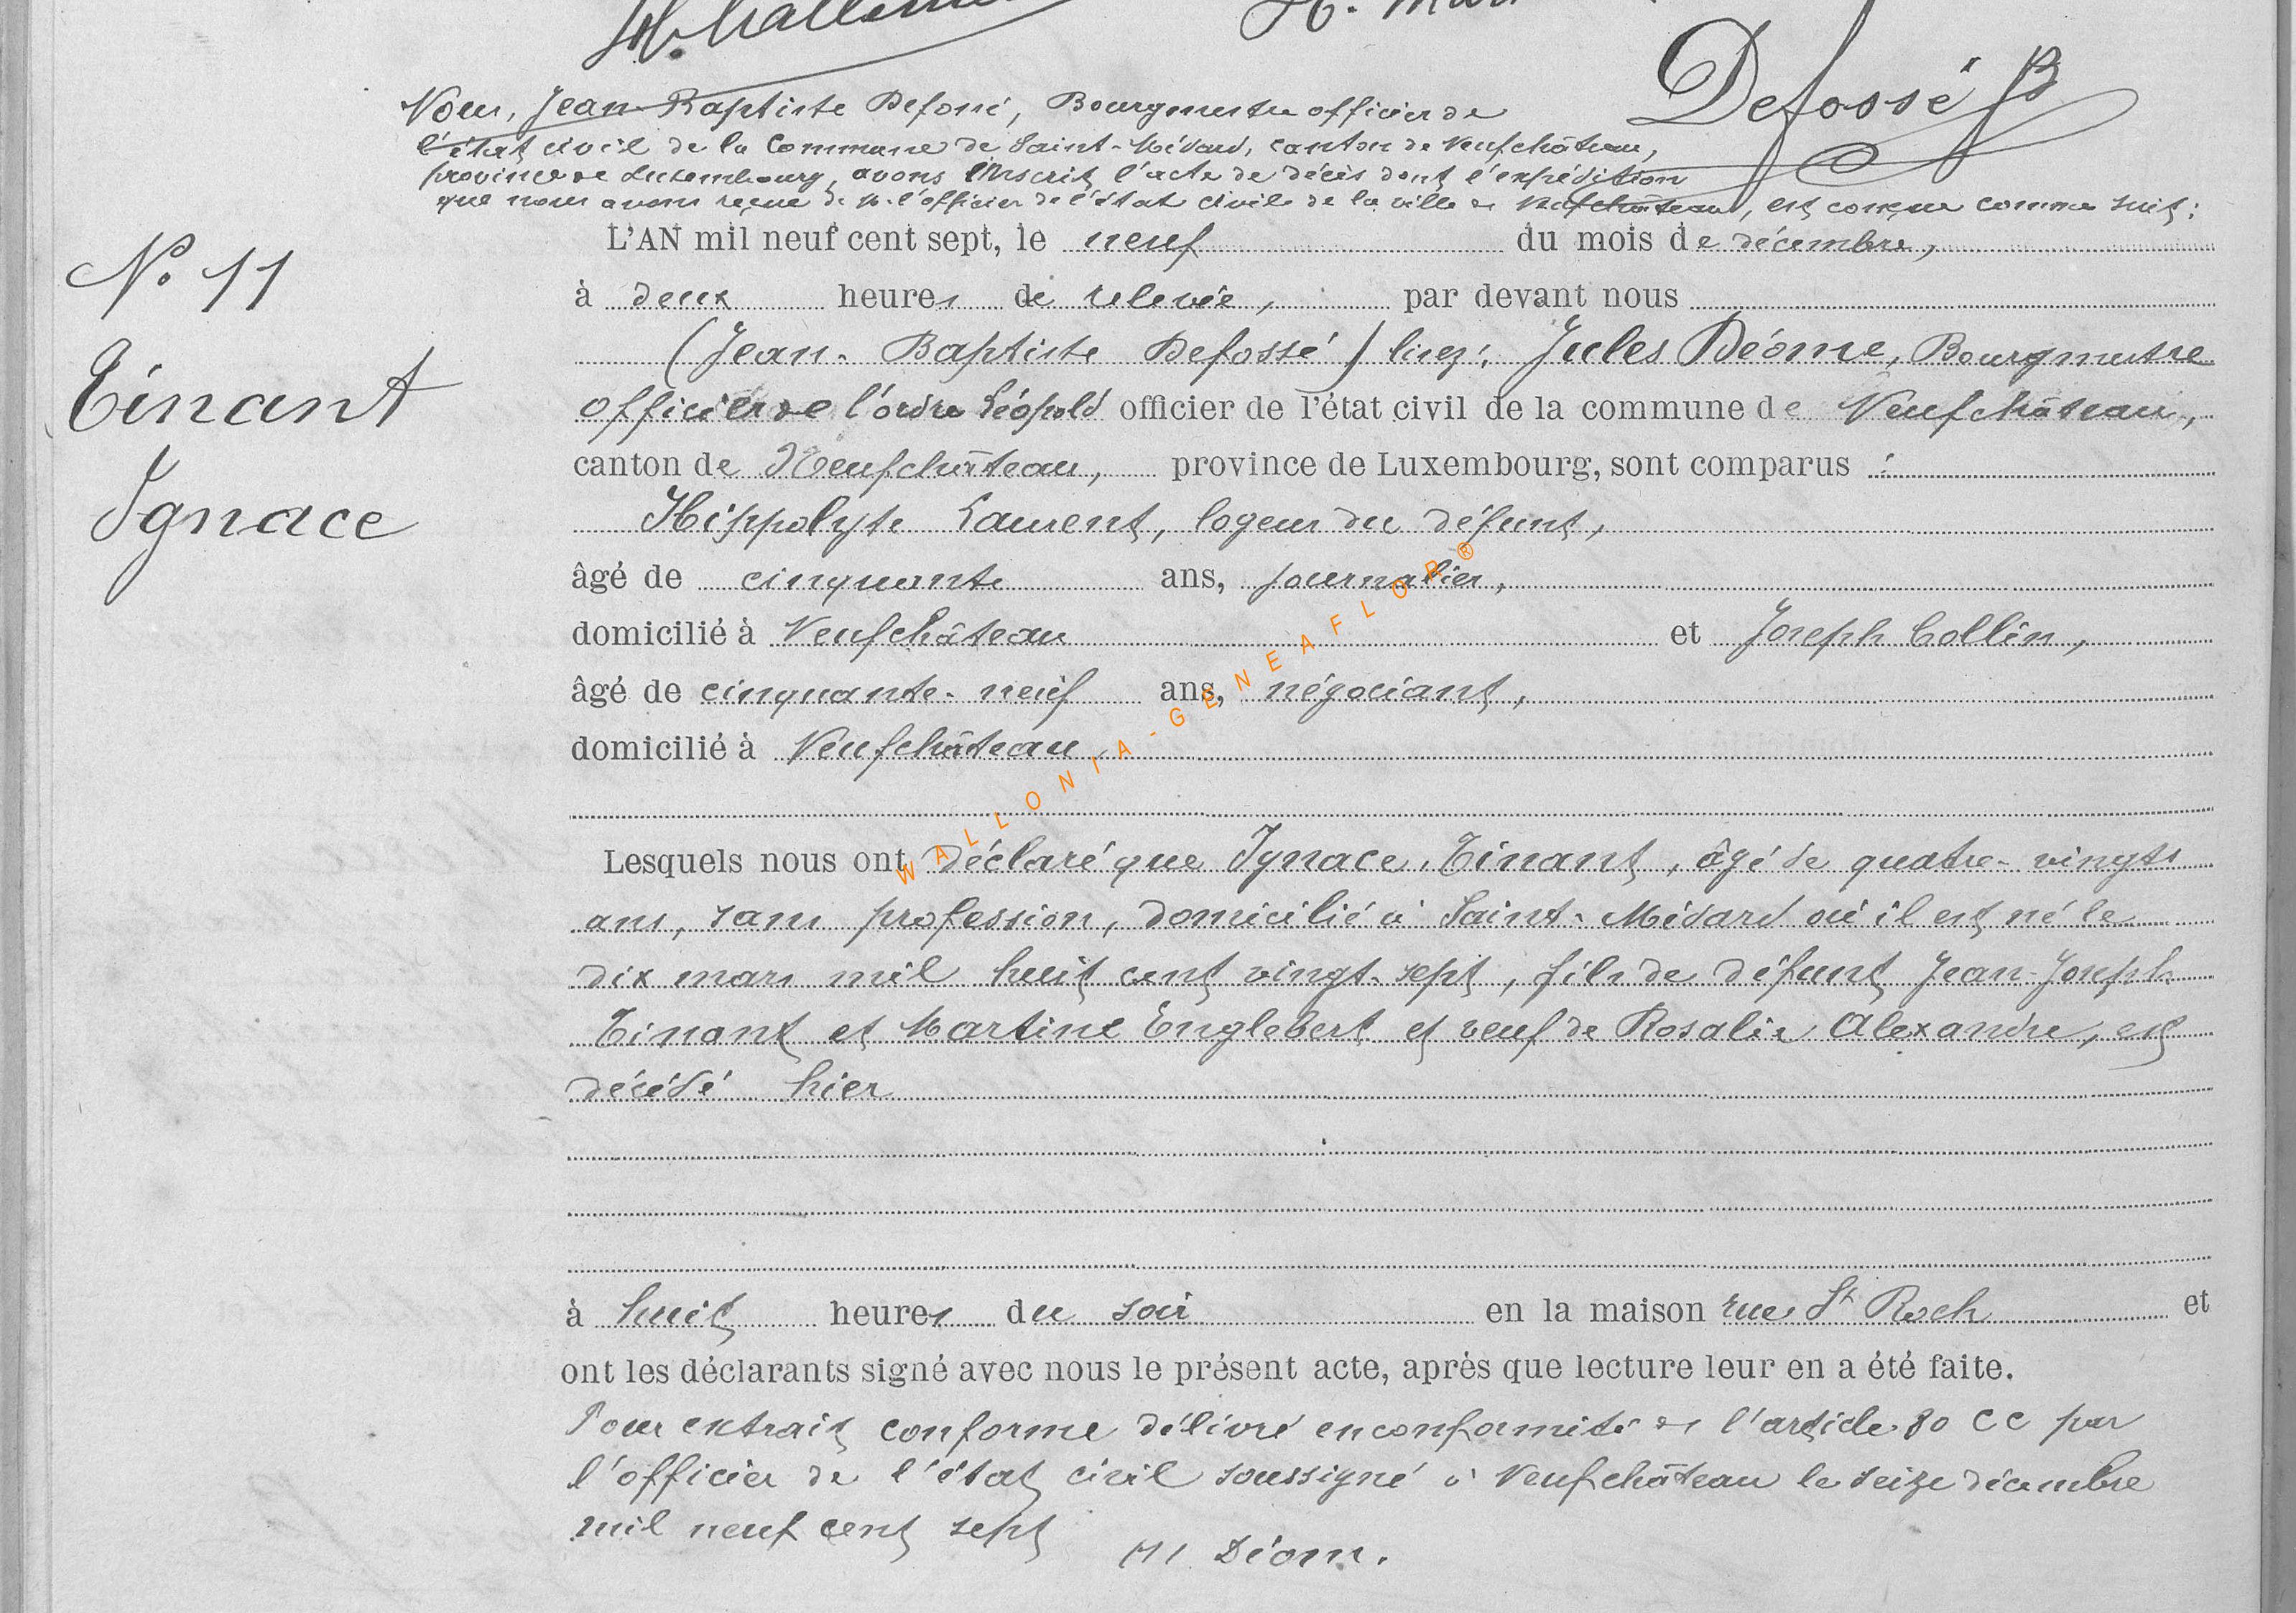 Defossé JB
Nous, Jean-Baptiste Defossé, Bourgmestre officier de
l'état civil de la Commune de Saint-Médard, canton de Neufchâteau,
province de Luxembourg, avons inscrit l'acte de décès dont l'expédition
que nous avons reçue de M. l'officier de l'état civil de la ville de Neufchâteau, est conçue comme suit :
L'AN mil neuf cent sept, le neuf du mois de décembre,
N° 11
à deux heures de relevée, par devant nous
(Jean-Baptiste Defossé) lisez: Jules Déome, Bourgmestre
Tinant
officier de l'ordre Léopold officier de l'état civil de la commune de Neufchâteau,
canton de Neufchâteau, province de Luxembourg, sont comparus :
Ignace
Hippolyte Laurent, logeur du défunt,
âgé de cinquante ans, journalier,
domicilié à Neufchâteau et Joseph Collin,
âgé de cinquante-neuf ans, négociant,
domicilié à Neufchâteau,
WALLONIA-GENEAFLOR®
Lesquels nous ont déclaré que Ignace, Tinant, âgé de quatre-vingts
ans, sans profession, domicilié à Saint-Médard où il est né le
dix mars mil huit cent vingt-sept, fils de défunt Jean-Joseph
Tinant et Martine Englebert et veuf de Rosalie Alexandre, est
décédé hier
à huit heures du soir en la maison rue St Roch et
ont les déclarants signé avec nous le présent acte, après que lecture leur en a été faite.
Pour extrait conforme délivré en conformité de l'article 80 CC par
l'officier de l'état civil soussigné à Neufchâteau le seize décembre
mil neuf cent sept
Déom.